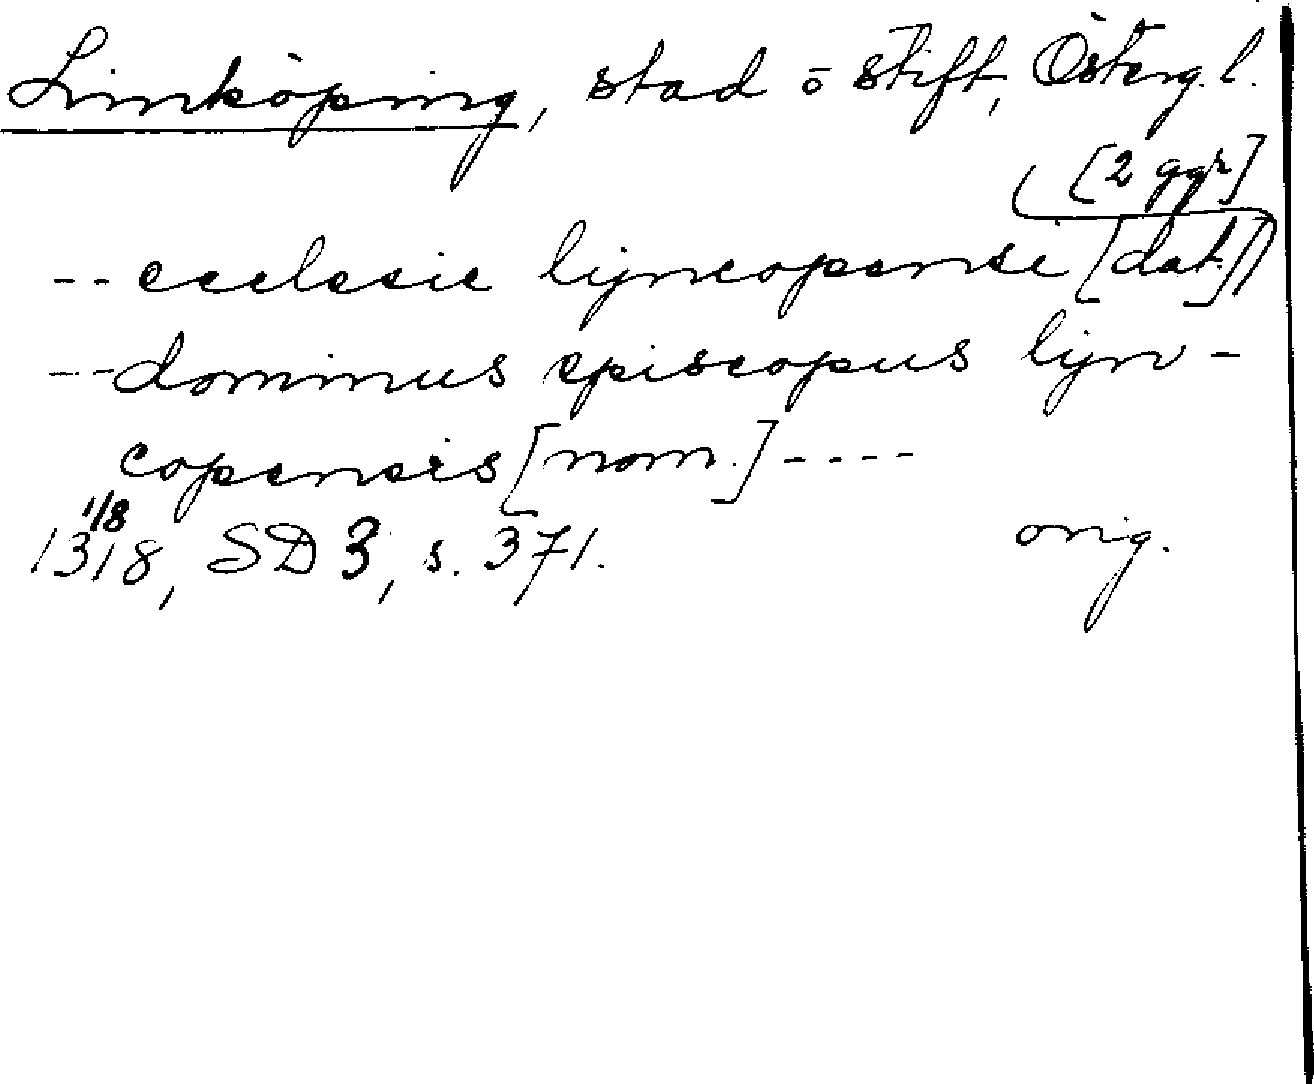 Linköping, stad o stift, Österg.l.
[2 ggr]
-- ecclesie lyncopensi [dat.]
--- dominus episcopus lyn-
copensis [nom.] ----
1/8
1318, SD 3, s. 371. orig.